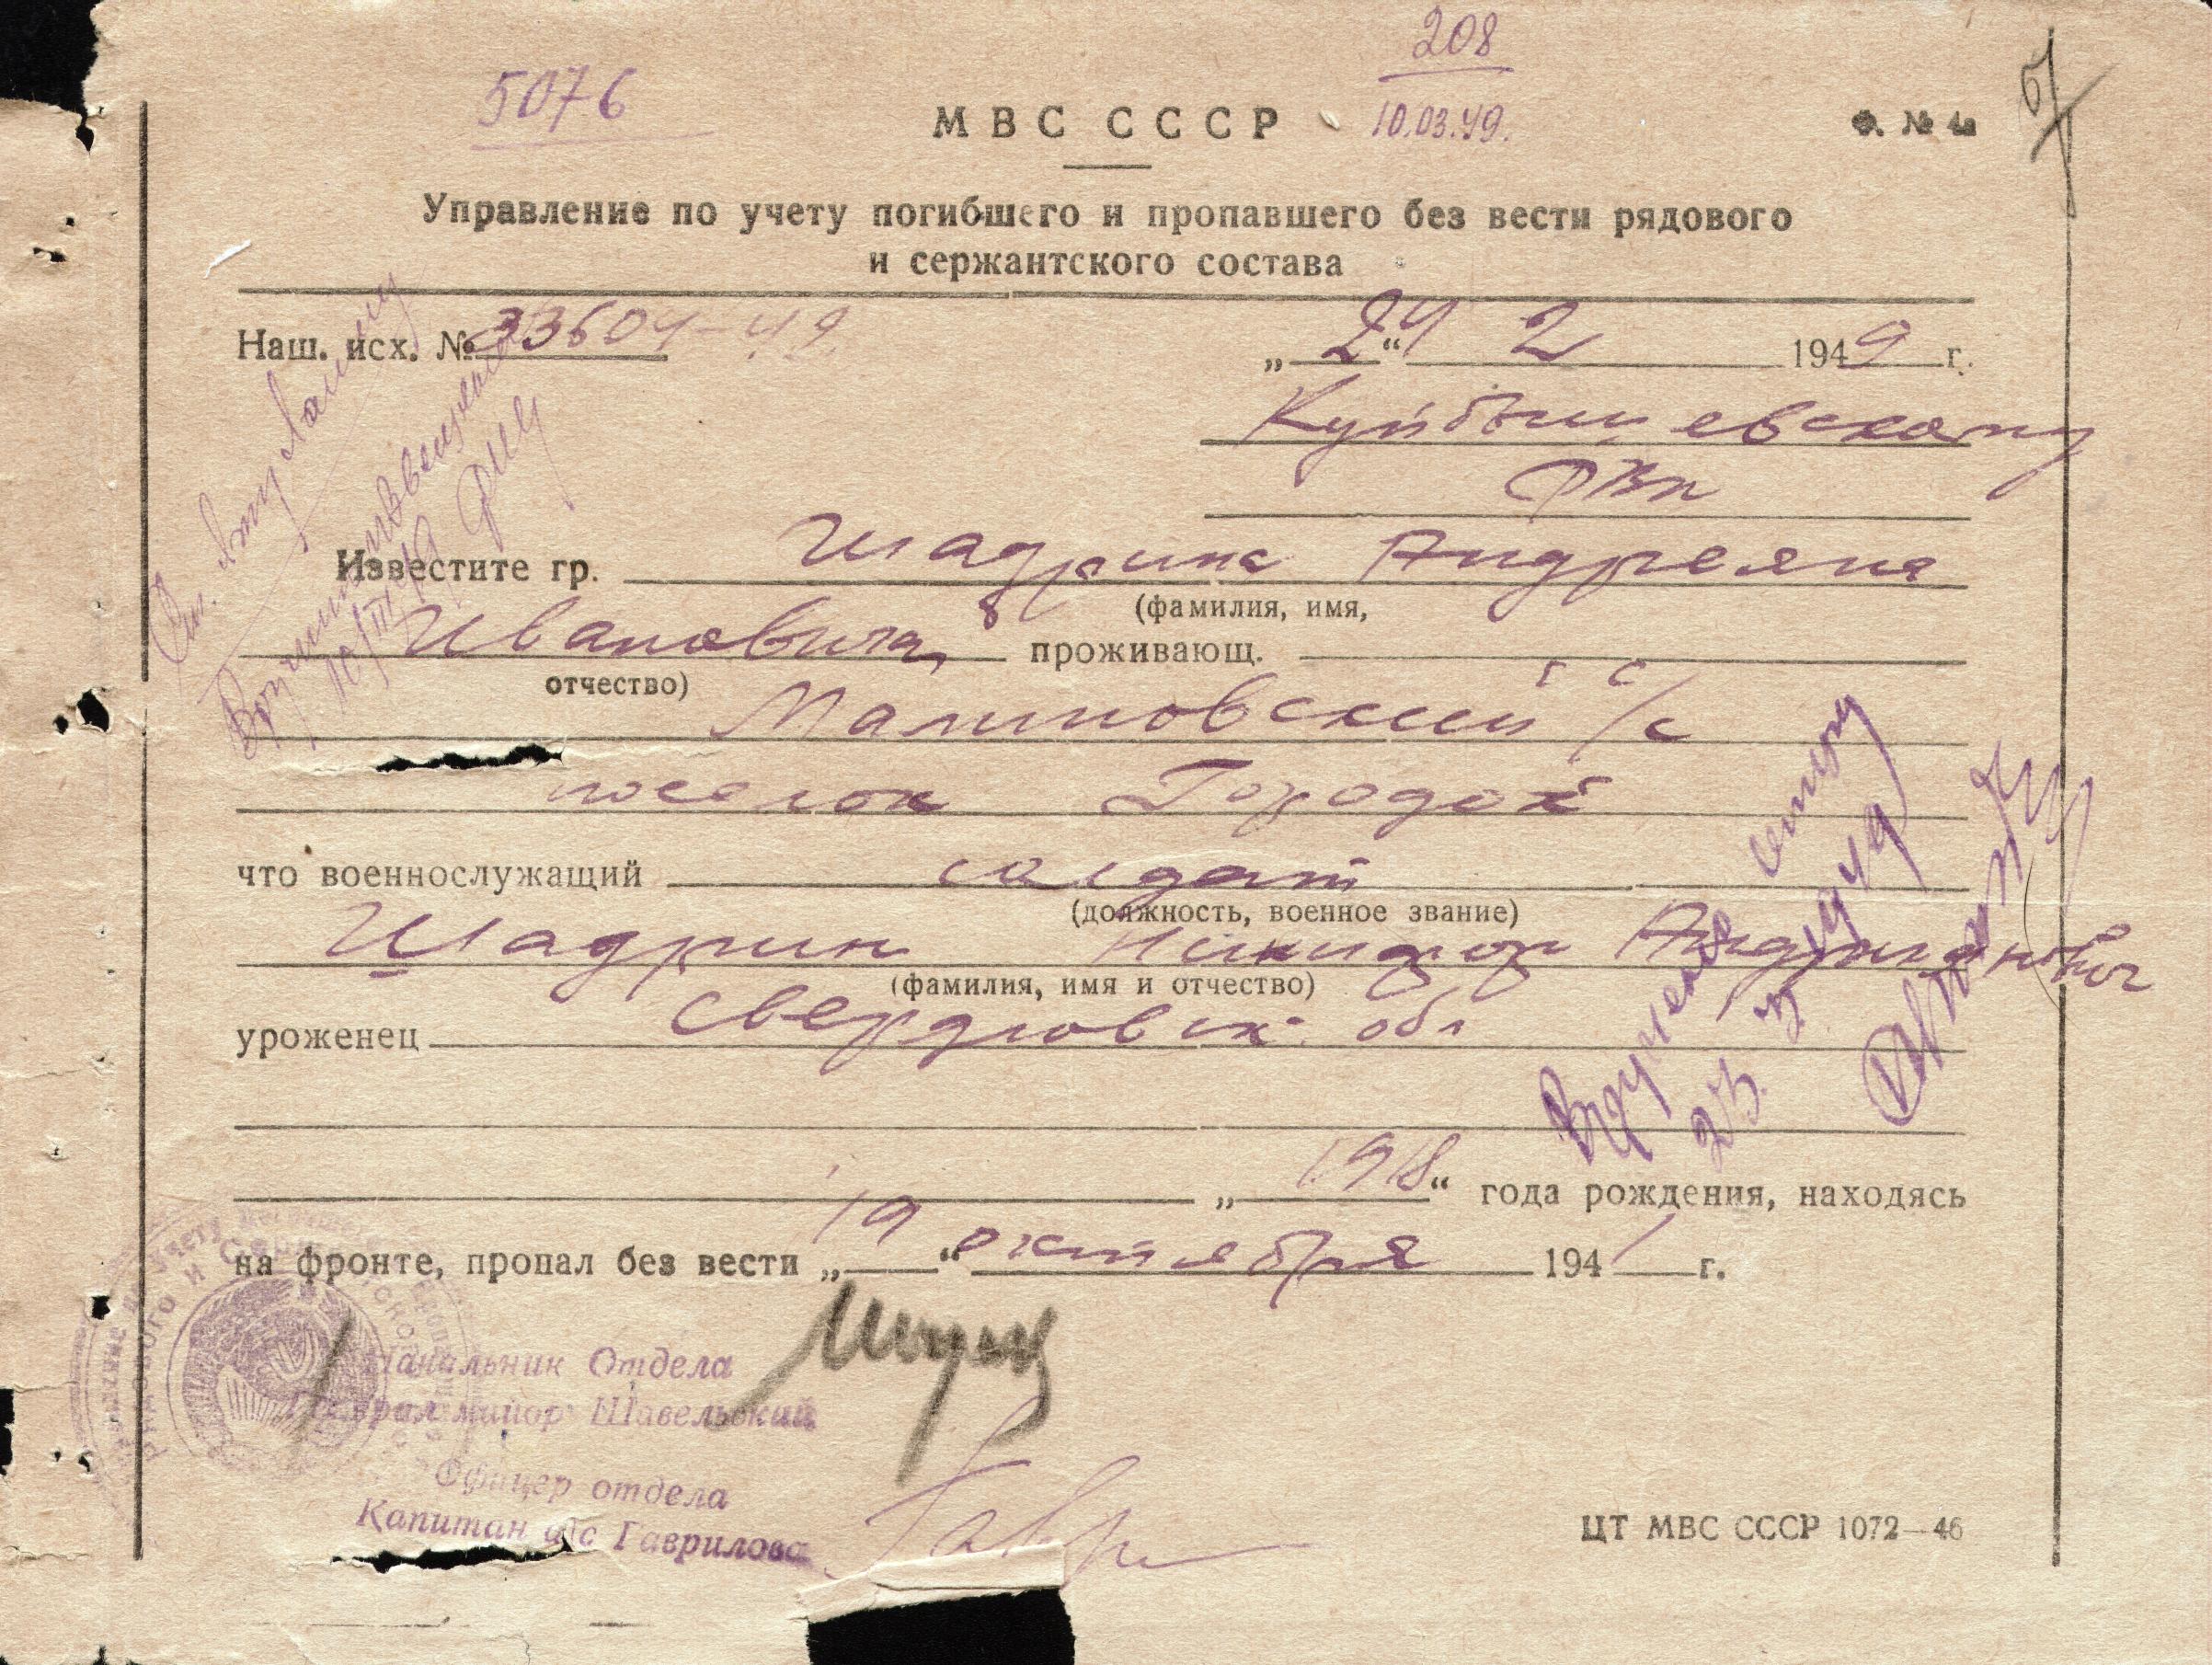 208
5076
МВС СССР
10.03.49.
Ф. № 4а
Управление по учету погибшего и пропавшего без вести рядового
и сержантского состава
Наш. исх. № 33604-49.
„24“ 2 1949 г.
Куйбышевскому
РВК
Известите гр. Шадрина Андреяна
(фамилия, имя,
Ивановича, проживающ.
отчество)
Малиновский с/с
поселок Городок
что военнослужащий солдат
(должность, военное звание)
Шадрин Никифор Андрианович
(фамилия, имя и отчество)
уроженец Свердловск. обл
„1918“ года рождения, находясь
на фронте, пропал без вести „19“ октября 1941 г.
Начальник Отдела
Генерал майор Шавельский
Офицер отдела
Капитан а/с Гаврилова
ЦТ МВС СССР 1072—46
Вручить извещение
10/III 49
Вручено
23. 3 49